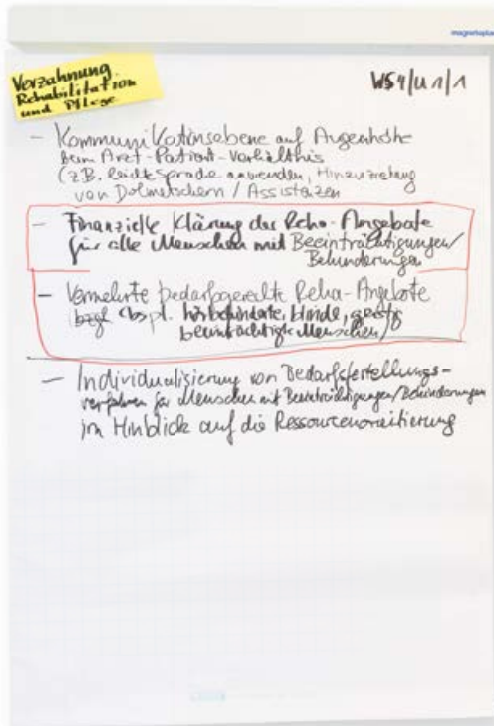 magnetoplan
Verzahnung
Rehabilitation
und Pflege
WS4/U1/1
- Kommunikationsebene auf Augenhöhe
beim Arzt-Patient-Verhältnis
(z.B. leichte Sprache anwenden, Hinzuziehung
von Dolmetschern / Assistenzen
- Finanzielle Klärung der Reha-Angebote
für alle Menschen mit Beeinträchtigungen/
Behinderungen
- Vermehrte bedarfsgerechte Reha-Angebote
bzgl (bspl. hörbehinderte, blinde, geistig
beeinträchtigte Menschen)
- Individualisierung von Bedarfsfeststellungs-
verfahren für Menschen mit Beeinträchtigungen/Behinderungen
im Hinblick auf die Ressourcenorientierung